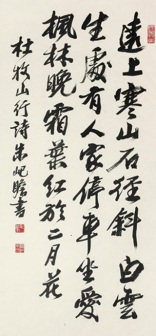 遠上寒山石径斜白雲
生處有人家停車坐愛
楓林晚霜葉紅於二月花
杜牧山行詩朱屺瞻書